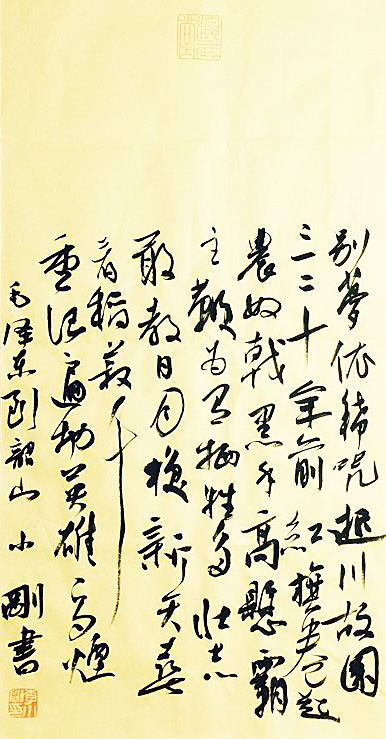 别梦依稀咒逝川故园
三二十年前红旗卷起
農奴戟黑手高懸霸
主鞭为有牺牲多壮志
敢教日月换新天喜
看稻菽千
重浪遍地英雄下夕煙
毛泽东到韶山小剛書